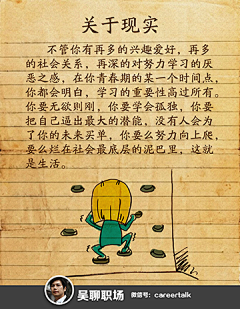 关于现实
不管你有再多的兴趣爱好,再多
的社会关系,再深的对努力学习的厌
恶之感,在你青春期的某一个时间点,
你都会明白,学习的重要性高过所有。
你要无欲则刚,你要学会孤独,你要
把自己逼出最大的潜能,没有人会为
了你的未来买单,你要么努力向上爬,
要么烂在社会最底层的泥巴里,这就
是生活。
吴聊职场 微信号:careertalk